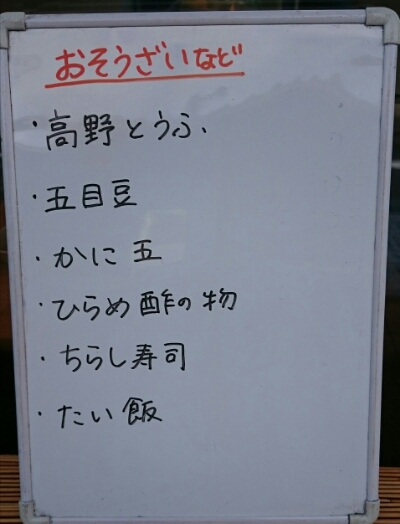 おそうざいなど
・高野とうふ
・五目豆
・かに五
・ひらめ酢の物
・ちらし寿司
・たい飯